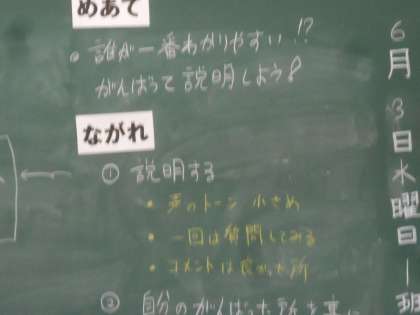 めあて
・誰が一番わかりやすい!?
がんばって説明しよう!
ながれ
① 説明する
・声のトーン 小さめ
・一回は質問してみる
・コメントは良かった所
② 自分のがんばった所を
6月3日水曜日一班